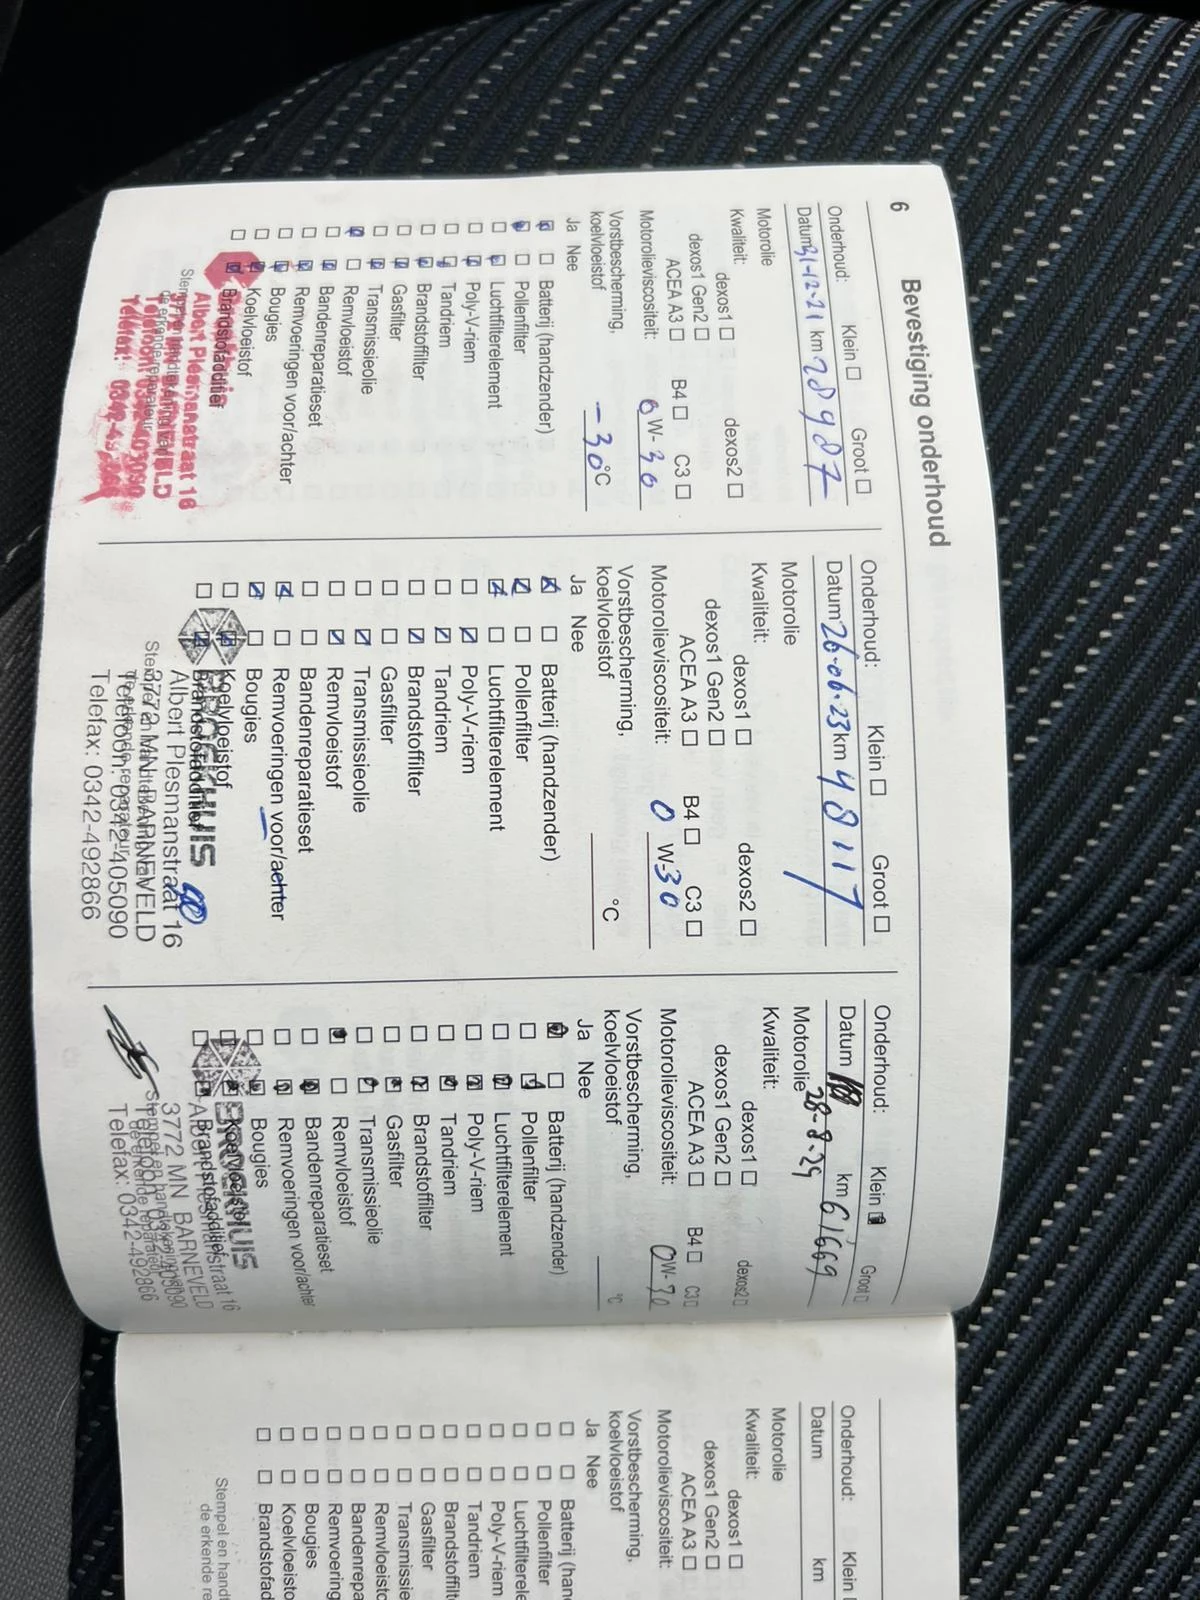 6
Bevestiging onderhoud
Onderhoud: Klein Groot
Datum 31-12-21 km 28987
Motorolie
Kwaliteit: dexos1 dexos2
dexos1 Gen2
ACEA A3 B4 C3
Motorolieviscositeit: 0 W- 30
Vorstbescherming,
koelvloeistof -30 °C
Ja Nee
Batterij (handzender)
Pollenfilter
Luchtfilterelement
Poly-V-riem
Tandriem
Brandstoffilter
Gasfilter
Transmissieolie
Remvloeistof
Bandenreparatieset
Remvoeringen voor/achter
Bougies
Koelvloeistof
Brandstofadditief
Albert Plesmanstraat 16
Onderhoud: Klein Groot
Datum 26-06-23 km 48117
Motorolie
Kwaliteit: dexos1 dexos2
dexos1 Gen2
ACEA A3 B4 C3
Motorolieviscositeit: 0 W- 30
Vorstbescherming,
koelvloeistof °C
Ja Nee
Batterij (handzender)
Pollenfilter
Luchtfilterelement
Poly-V-riem
Tandriem
Brandstoffilter
Gasfilter
Transmissieolie
Remvloeistof
Bandenreparatieset
Remvoeringen voor/achter
Bougies
Koelvloeistof
Brandstofadditief
BROEKHUIS
Albert Plesmanstraat 16
3772 MN BARNEVELD
Telefoon: 0342-405090
Telefax: 0342-492866
Onderhoud: Klein Groot
Datum km 61669
Motorolie 28-8-24
Kwaliteit: dexos1 dexos2
dexos1 Gen2
ACEA A3 B4 C3
Motorolieviscositeit: 0W-30
Vorstbescherming,
koelvloeistof °C
Ja Nee
Batterij (handzender)
Pollenfilter
Luchtfilterelement
Poly-V-riem
Tandriem
Brandstoffilter
Gasfilter
Transmissieolie
Remvloeistof
Bandenreparatieset
Remvoeringen voor/achter
Bougies
Koelvloeistof
Brandstofadditief
BROEKHUIS
Albert Plesmanstraat 16
3772 MN BARNEVELD
Telefax: 0342-492866
Onderhoud: Klein
Datum km
Motorolie
Kwaliteit: dexos1
dexos1 Gen2
ACEA A3
Motorolieviscositeit:
Vorstbescherming,
koelvloeistof
Ja Nee
Batterij (han
Pollenfilter
Luchtfilterele
Poly-V-riem
Tandriem
Brandstoffilt
Gasfilter
Transmissie
Remvloeist
Bandenrepa
Remvoering
Bougies
Koelvloeisto
Brandstofad
Stempel en handt
de erkende re